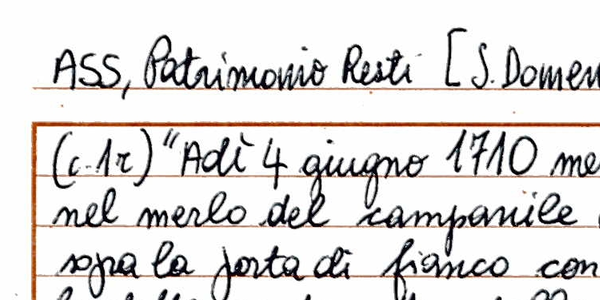 ASS, Patrimonio Resti [S. Domen
(c.1r) "Adì 4 giugno 1710 me
nel merlo del campanile
sopra la porta di fianco con